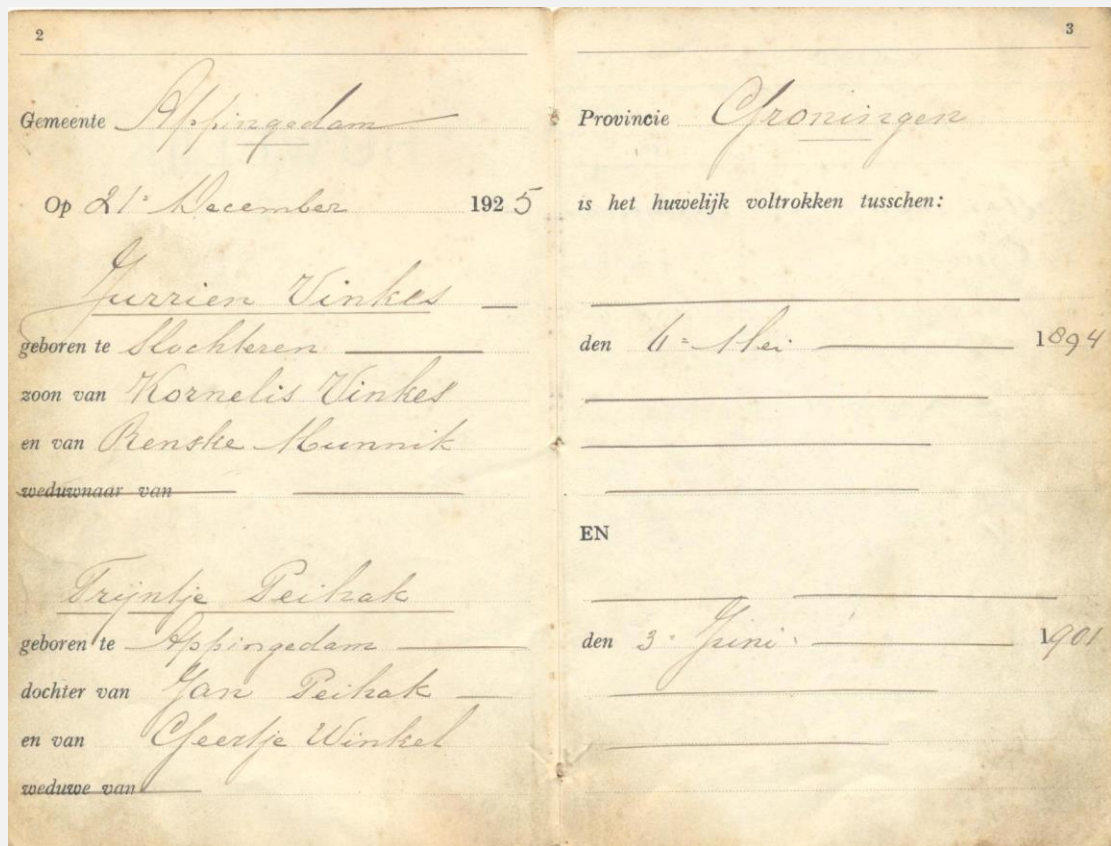 2
Gemeente Appingedam
Op 21 December 1925
Jurrien Vinkes
geboren te Slochteren
zoon van Kornelis Vinkes
en van Renske Munnik
weduwnaar van
Trijntje Peihak
geboren te Appingedam
dochter van Jan Peihak
en van Geertje Winkel
weduwe van
3
Provincie Groningen
is het huwelijk voltrokken tusschen:
den 6 Mei 1894
EN
den 3 Juni 1901